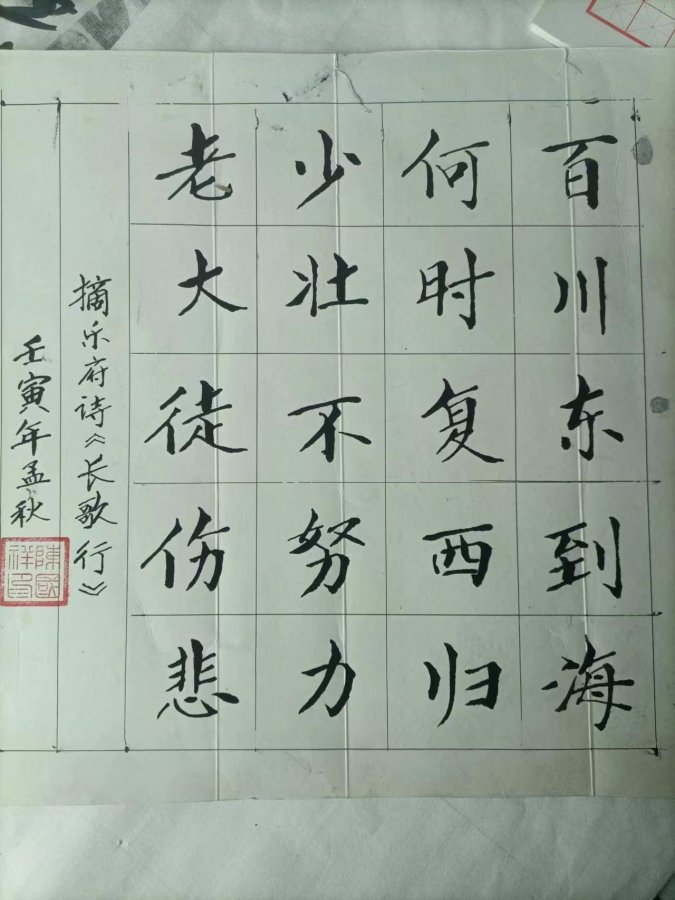 百川东到海
何时复西归
少壮不努力
老大徒伤悲
摘乐府诗《长歌行》
壬寅年孟秋
陳國祥印